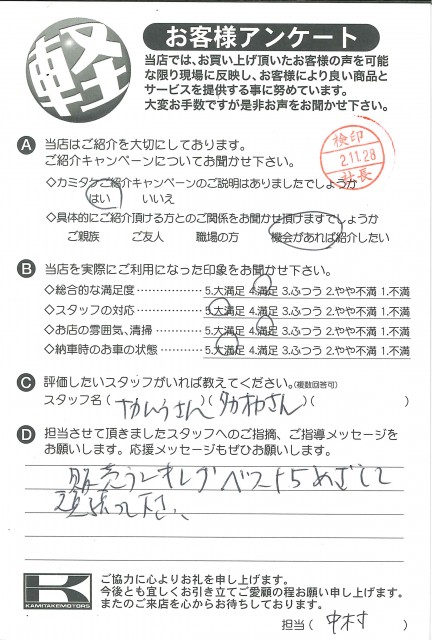 軽
お客様アンケート
当店では、お買い上げ頂いたお客様の声を可能
な限り現場に反映し、お客様により良い商品と
サービスを提供する事に努めています。
大変お手数ですが是非お声をお聞かせ下さい。
A 当店はご紹介を大切にしております。
ご紹介キャンペーンについてお聞かせ下さい。
検印
2.11.28
社長
◇カミタケご紹介キャンペーンのご説明はありましたでしょうか
はい いいえ
◇具体的にご紹介頂ける方とのご関係をお聞かせ頂けますでしょうか
ご親族 ご友人 職場の方 機会があれば紹介したい
B 当店を実際にご利用になった印象をお聞かせ下さい。
◇総合的な満足度 5.大満足 4.満足 3.ふつう 2.やや不満 1.不満
◇スタッフの対応 5.大満足 4.満足 3.ふつう 2.やや不満 1.不満
◇お店の雰囲気、清掃 5.大満足 4.満足 3.ふつう 2.やや不満 1.不満
◇納車時のお車の状態 5.大満足 4.満足 3.ふつう 2.やや不満 1.不満
C 評価したいスタッフがいれば教えてください。(複数回答可)
スタッフ名 ( さん ) ( さん ) ( )
D 担当させて頂きましたスタッフへのご指摘、ご指導メッセージを
お願いします。応援メッセージもぜひお願いします。
販売 ベスト5めざして
頑張って下さい、
K
KAMITAKEMOTORS
ご協力に心よりお礼を申し上げます。
今後とも宜しくお引き立てご愛顧の程お願い申し上げます。
またのご来店を心からお待ちしております。
担当 ( 中村 )